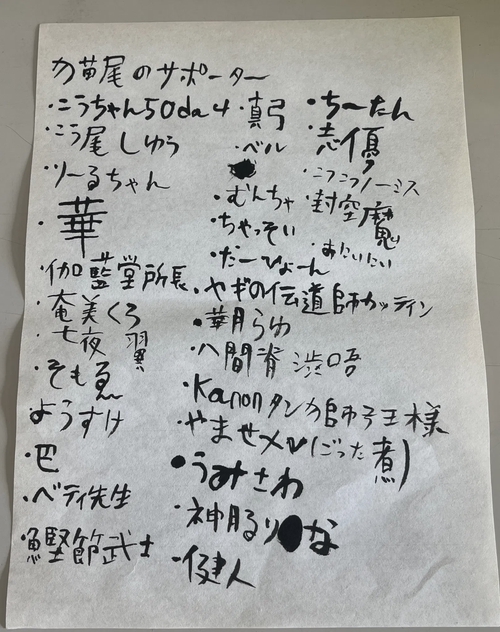 力苗尾のサポーター
・こうちゃん50da4
・こう尾しゆう
・つーるちゃん
・華
・伽藍堂所長
・奄美くろ
・七夜 翼
・そもゑ
ようすけ
・巴
・ベティ先生
鰹節武士
・真弓
・ベル
・むんちゃ
・ちゃっそい
・だーひょーん
・ヤギの伝道師カッテイン
・華月らゆ
・八間脊 渋唔
・Kanonタンカ師子王様
・やませメい(ごった煮)
・うみさわ
・神月るり な
・健人
・ちーたん
・志優
・ニコニコノーミス
・封空魔
・おにいにい